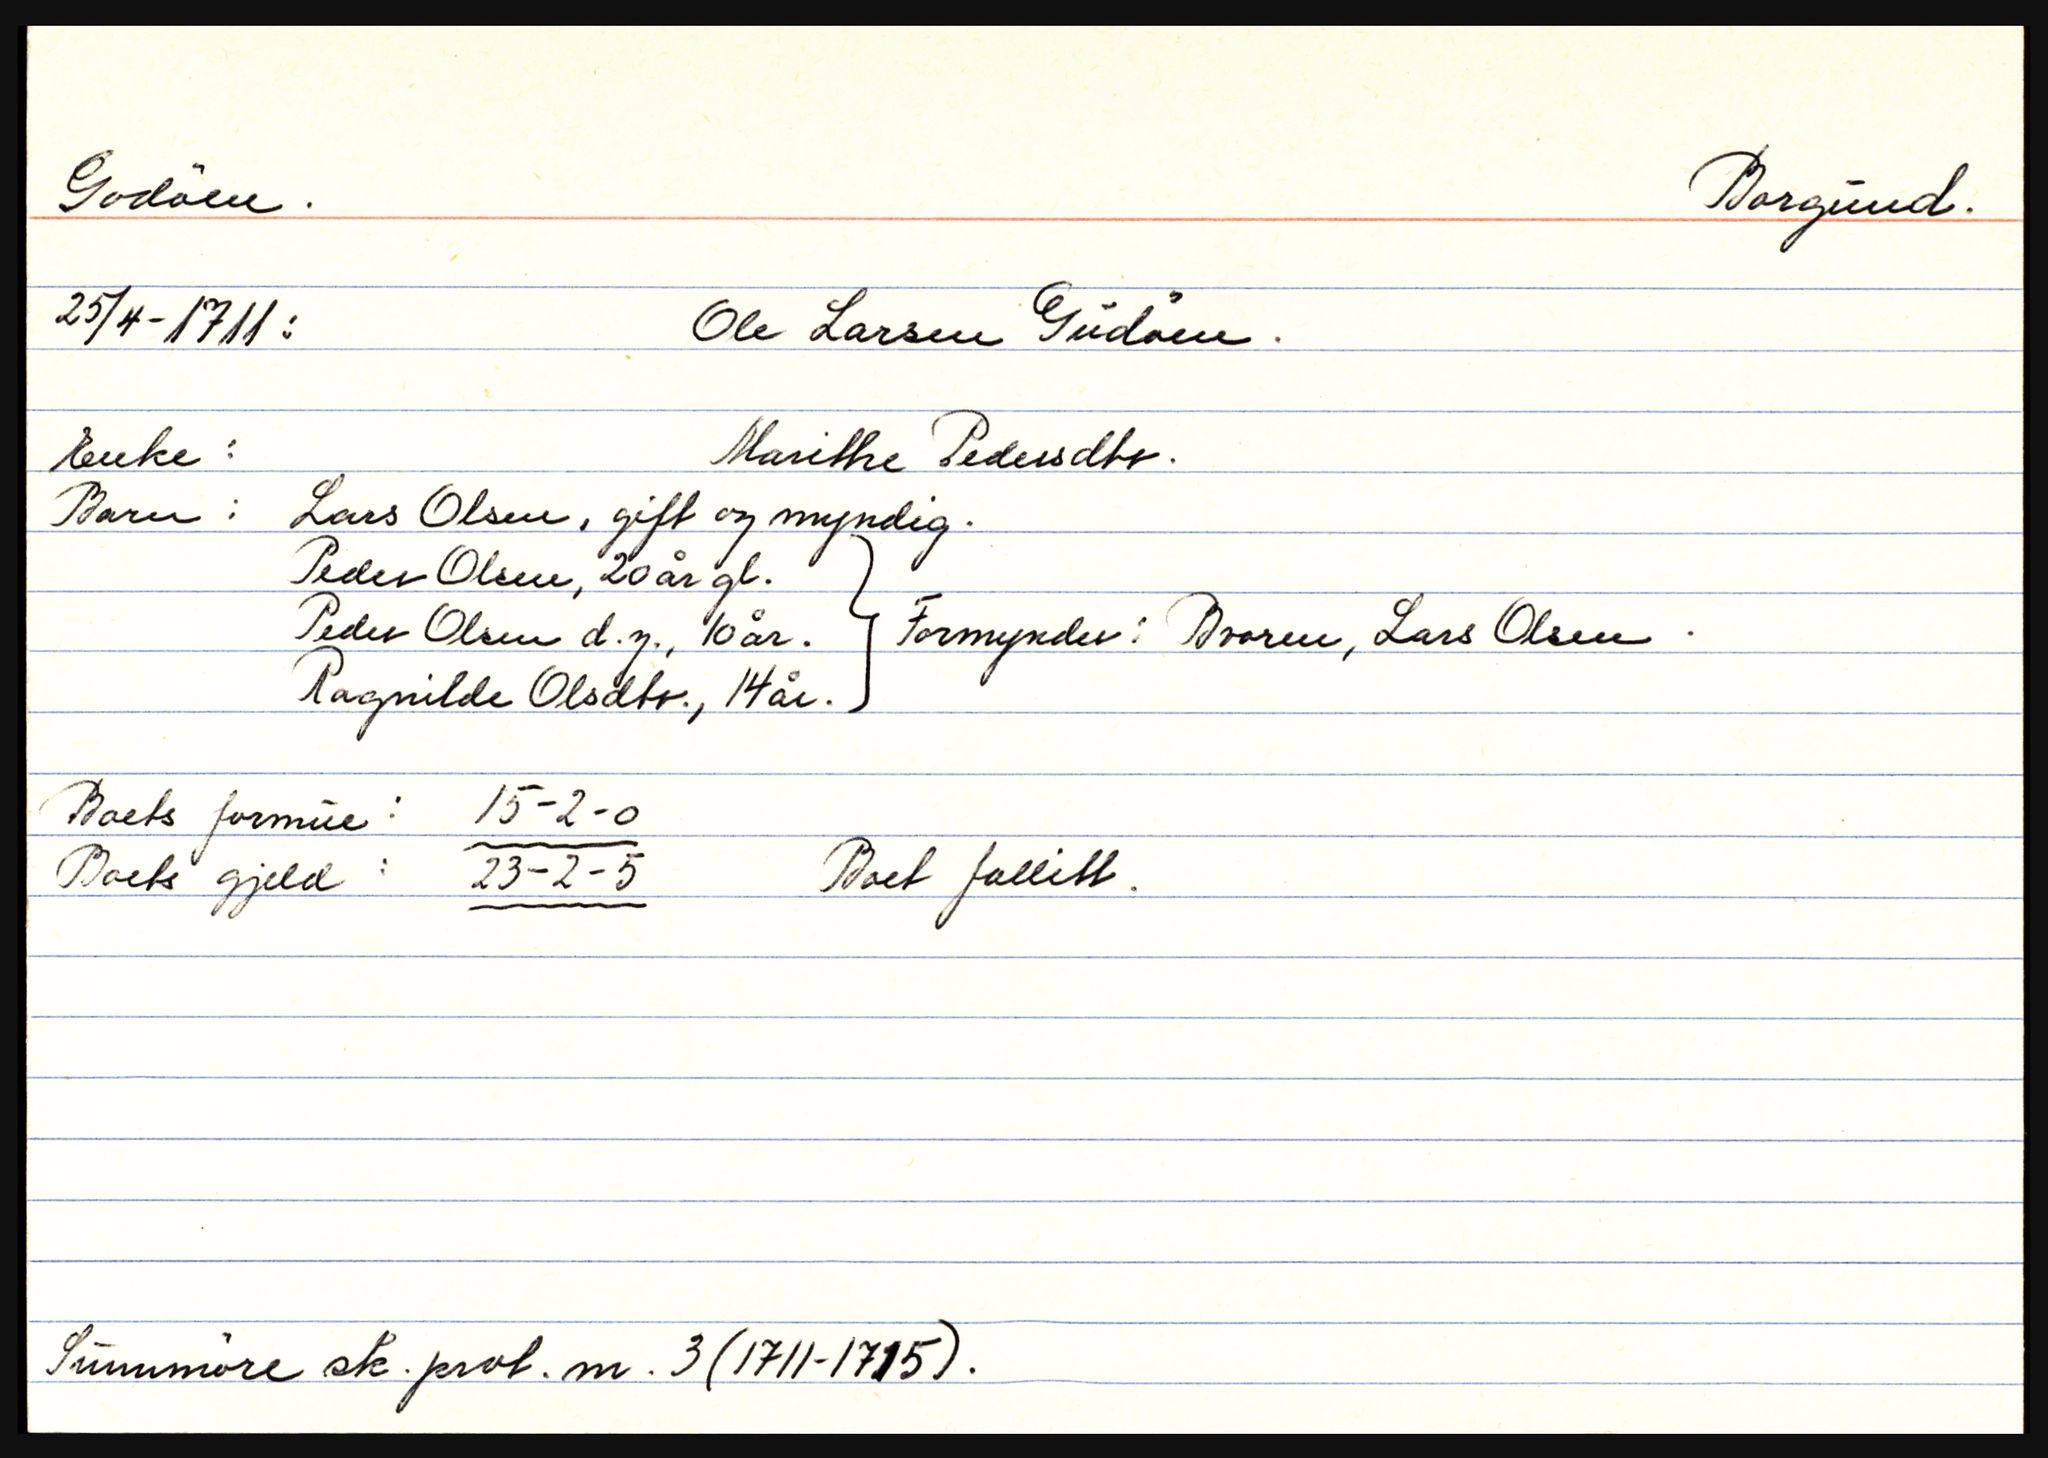 Godöen. Borgund.
25/4-1711: Ole Larsen Gudöen.
Enke: Marithe Pedersdtr.
Barn: Lars Olsen, gift og myndig.
Peder Olsen, 20 år gl.
Peder Olsen d.y., 10 år. } Formynder: Broren, Lars Olsen.
Ragnilde Olsdtr., 14 år.
Boets formue: 15-2-0
Boets gjeld: 23-2-5 Boet fallitt.
Sunnmöre sk. prot. nr. 3 (1711-1715).